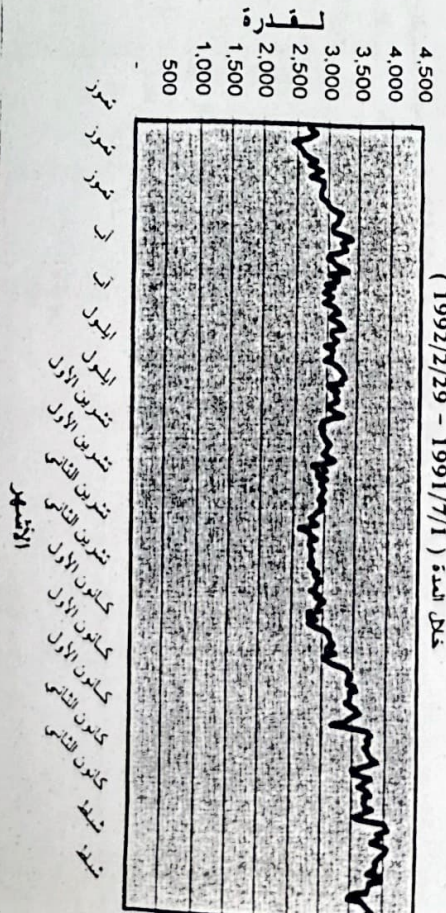 خلال المدة ( 1991/7/1 - 1992/2/29 )
4,500
4,000
3,500
3,000
2,500
2,000
1,500
1,000
500
-
تموز
تموز
تموز
آب
آب
ايلول
ايلول
تشرين الأول
تشرين الأول
تشرين الثاني
تشرين الثاني
كانون الأول
كانون الأول
كانون الأول
كانون الثاني
كانون الثاني
شباط
شباط
الأشهر